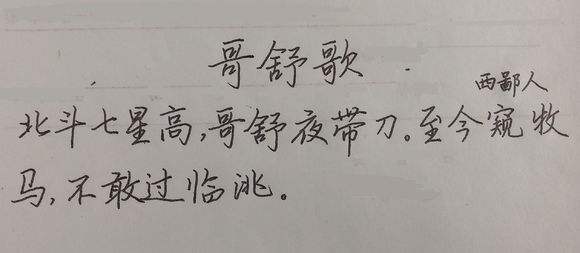 哥舒歌
西鄙人
北斗七星高,哥舒夜带刀。至今窥牧
马,不敢过临洮。